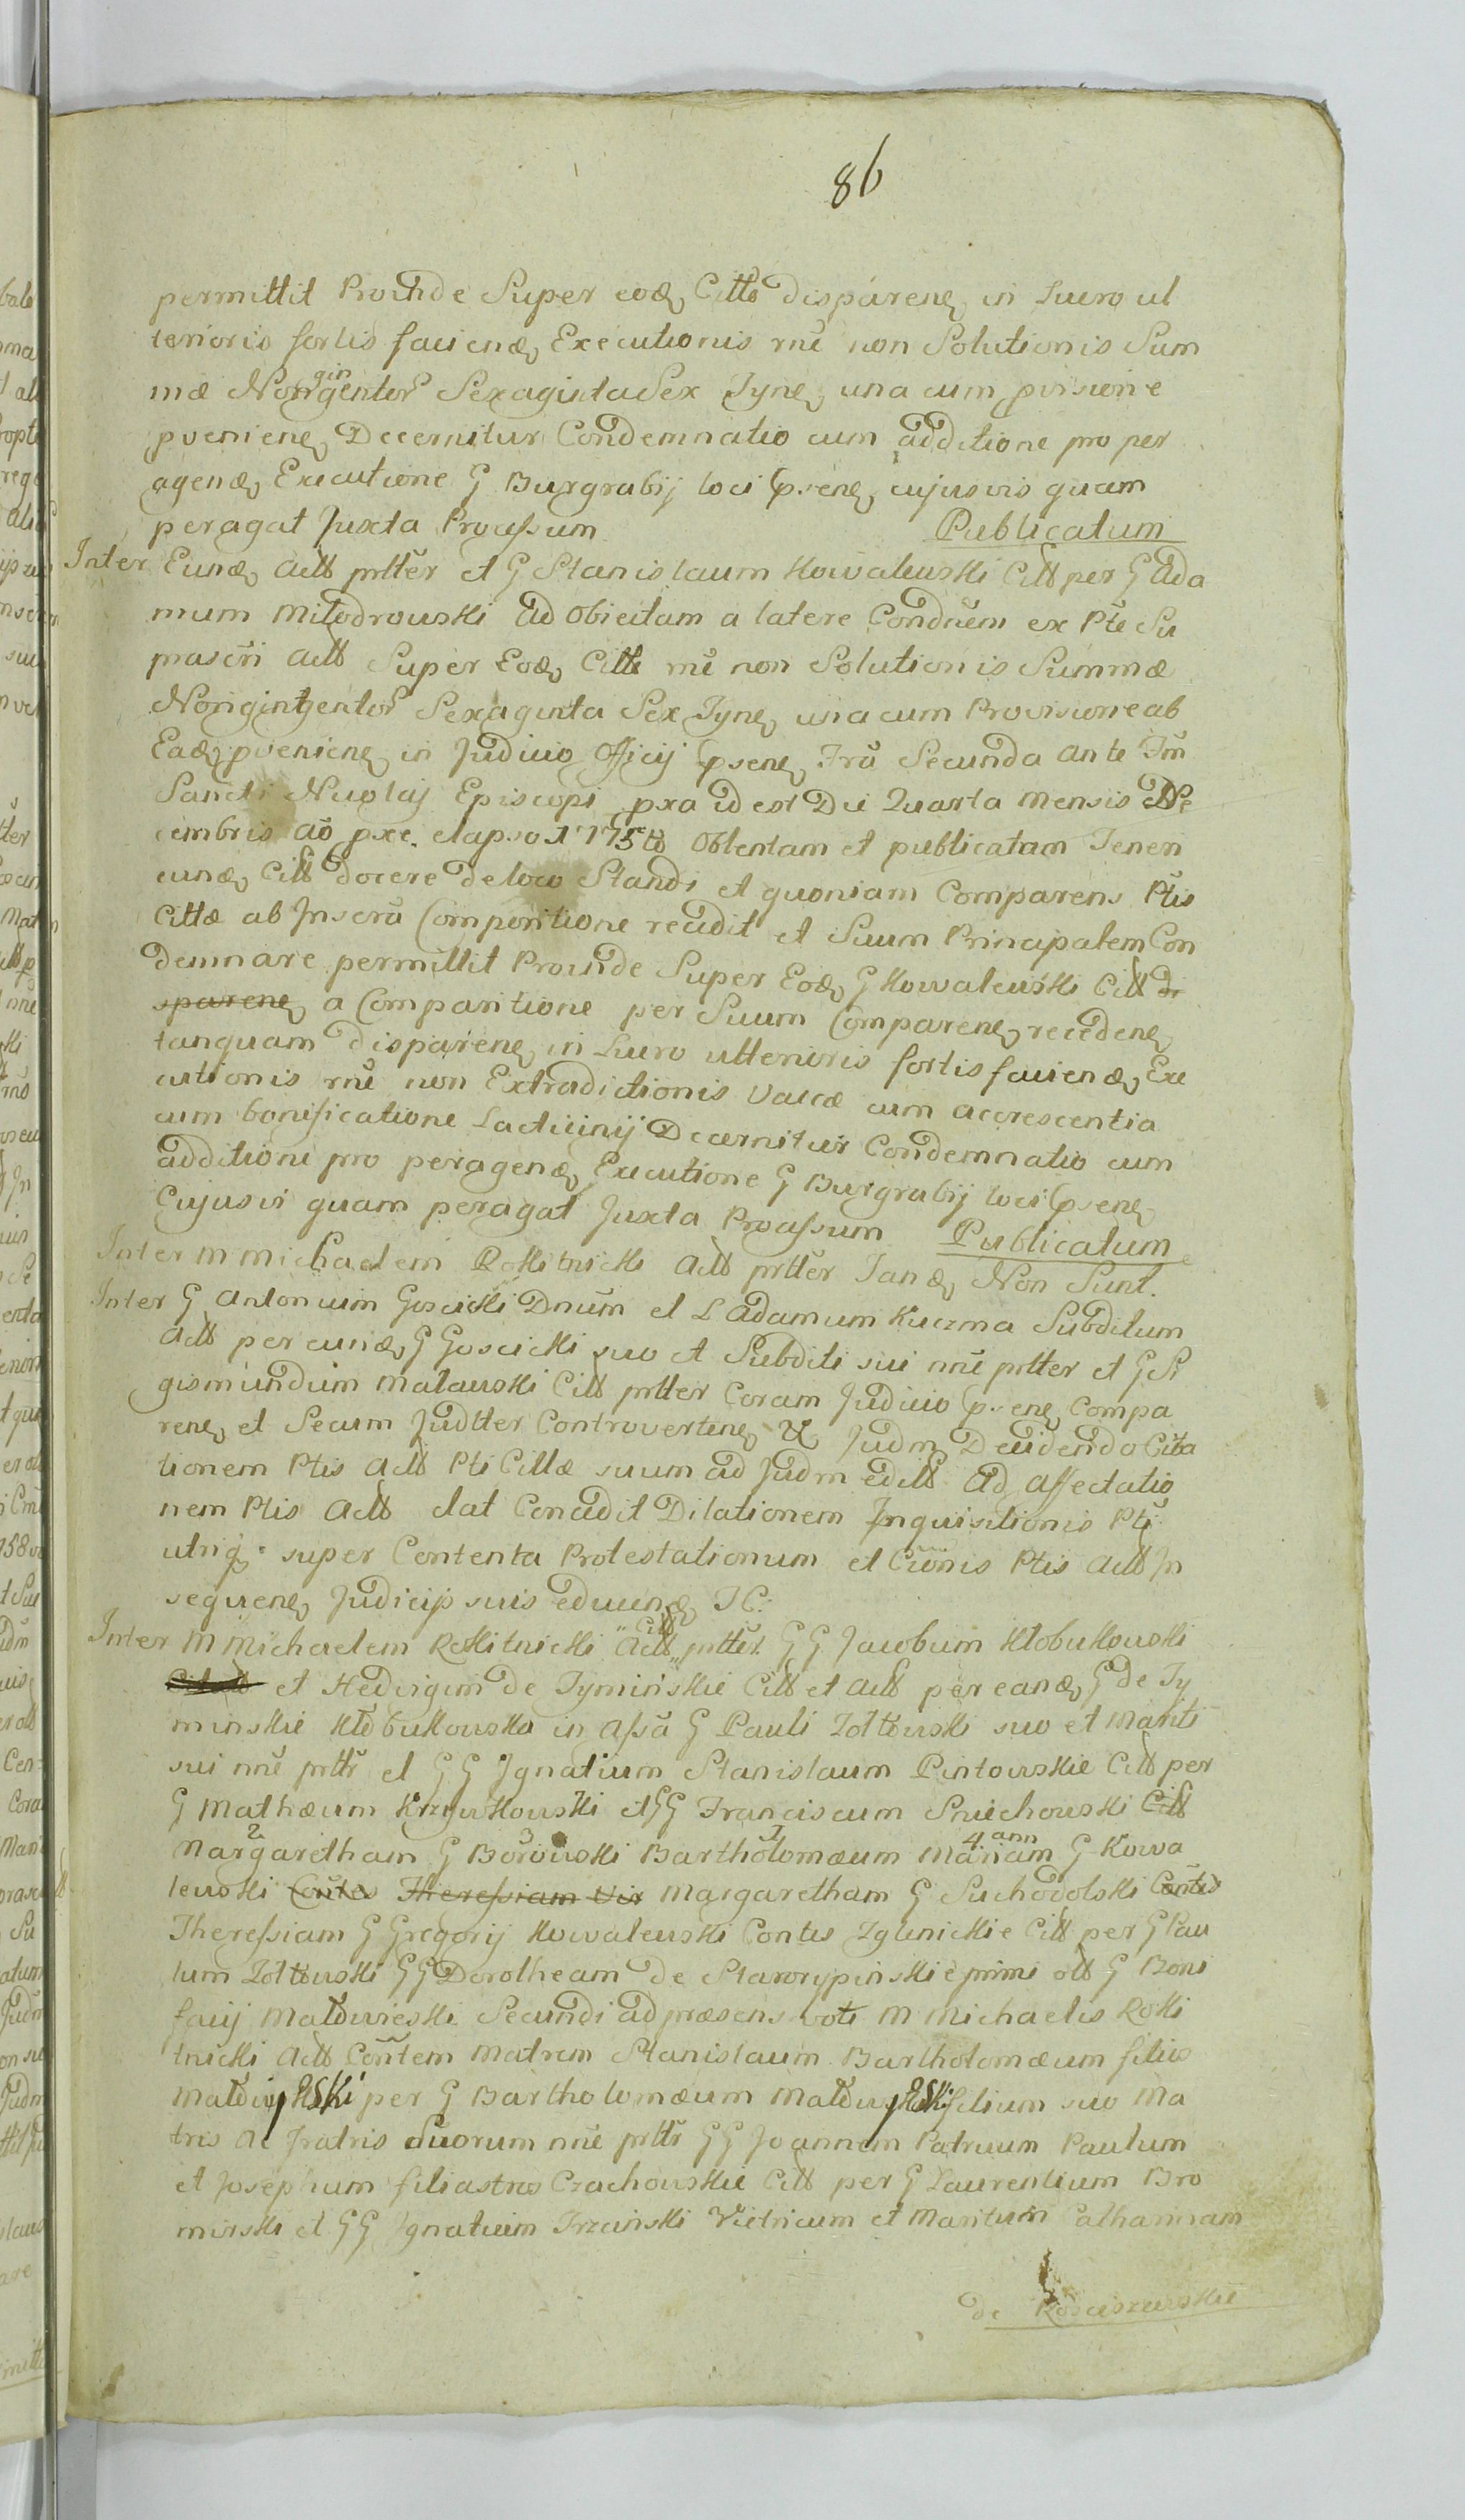 86
permittit Proinde Super eodę Citto disparenę in Lucro ul
terioris fortis faciendę Executionis rne non Solutionis Sum
mæ Nongingentor Sexaginta Sex Tynę una cum pvisione
pvenienę Decernitur Condemnatio cum additione pro per
agendę Executione G Burgrabij loci psenę cujusvis quam
peragat Juxta Processum Publicatum
Inter Eundę Actt prtter et G Stanislaum Kowalewski Citt per G Ada
mum Milodrowski ad Obiectam a latere Condnem ex Pte Su
prascri Actt Super Eodę Citte rne non Solutionis Summæ
Nongingentor Sexaginta Sex Tynę una cum Provisione ab
Eadę pvenienę in Judicio Officij psenę Fra Secunda ante Fm
Sancti Nicolaj Episcopi pxa id est Die Quarta Mensis De
cembris ao pxe elapso 1775to Obtentam et publicatam Tenen
eundę Citt docere de loco Standi et quoniam Comparens Ptis
Cittæ ab Inscra Comparitione recedit et Suum Principalem Con
demnare permittit Proinde Super Eodę G Kowalewski Citt di
sparenę a Comparitione per Suum Comparenę recedenę
tanquam disparenę in Lucro ulterioris fortis faciendę Exe
cutionis rne non Extradictionis Vaccæ cum accrescentia
cum bonificatione Lacticinij Decernitur Condemnatio cum
additione pro peragendę Executione G Burgrabij loci psenę
Cujusvis quam peragat Juxta Processum Publicatum
Inter M Michaelem Rokitnicki Actt prtter Tandę Non Sunt.
Inter G Antonium Goscicki Dnum et L Adamum Kuczma Subditum
Actt per eundę G Goscicki suo et Subditi sui nne prtter et G Si
gismundum Malawski Citt prtter Coram Judicio psenę Compa
renę et Secum Judtter Controvertenę & Judm Decidendo Cita
tionem Ptis Actt Pti Cittæ suum ad Judm editt ad affectatio
nem Ptis Actt dat Concedit Dilationem Inquisitionis Pti
utriq super Contenta Protestationum et Cionis Ptis Actt In
sequenę Judicijs suis educendę TC:
Inter M Michaelem Rokitnicki Citt Actt prtter G G Jacobum Klobukowski
et Hedvigim de Tyminskie Citt et Actt per eandę G de Ty
minskie Klobukowska in assa G Pauli Zoltowski suo et Mariti
sui nne prttr et G G Ignatium Stanislaum Pintowskie Citt per
G Mathæum Krzywkowski et G G Franciscum Sniechowski Citt
2 3 1 4 ann
Margaretham G Borowski Bartholomæum Mariam G Kowa
lewski Contes Theressiam Vir Margaretham G Suchodolski Contes
Theressiam G Gregorij Kowalewski Contes Zglinickie Citt per G Pau
lum Zoltowski G G Dorotheam de Starorypinskie primi ott G Boni
facij Maldwieski Secundi ad præsens voti M Michaelis Roki
tnicki Actt Contem Matrem Stanislaum Bartholomæum filios
Maldrzyski per G Bartholomæum filium suo Ma
tris ac Fratris Suorum nne prttr G G Joannem Patruum Paulum
et Josephum filiastros Czachowskie Citt per G Laurentium Bro
mirski et G G Ignatium Trzcinski Vitricum et Maritum Catharinam
de Kosciszewskie